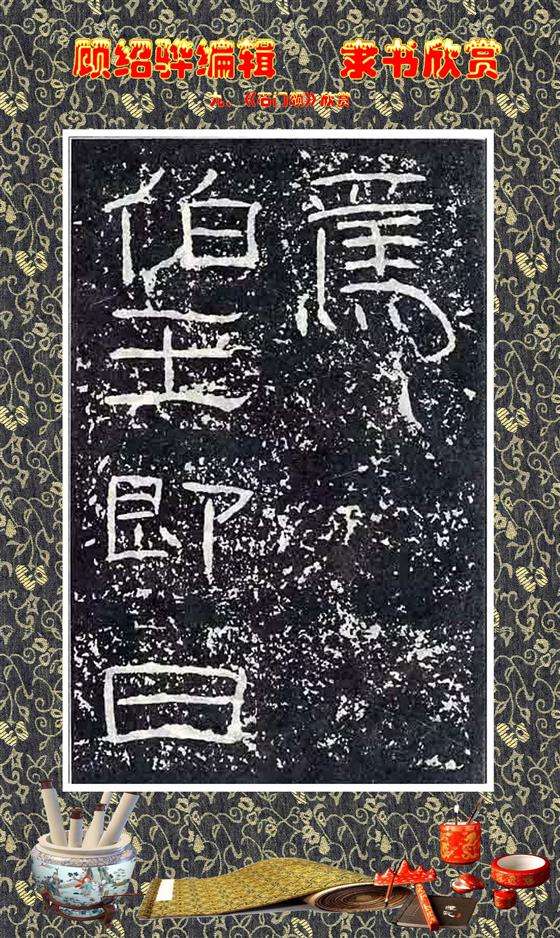 顾绍骅编辑 隶书欣赏
九、《石门颂》欣赏
焉
伯玉即日